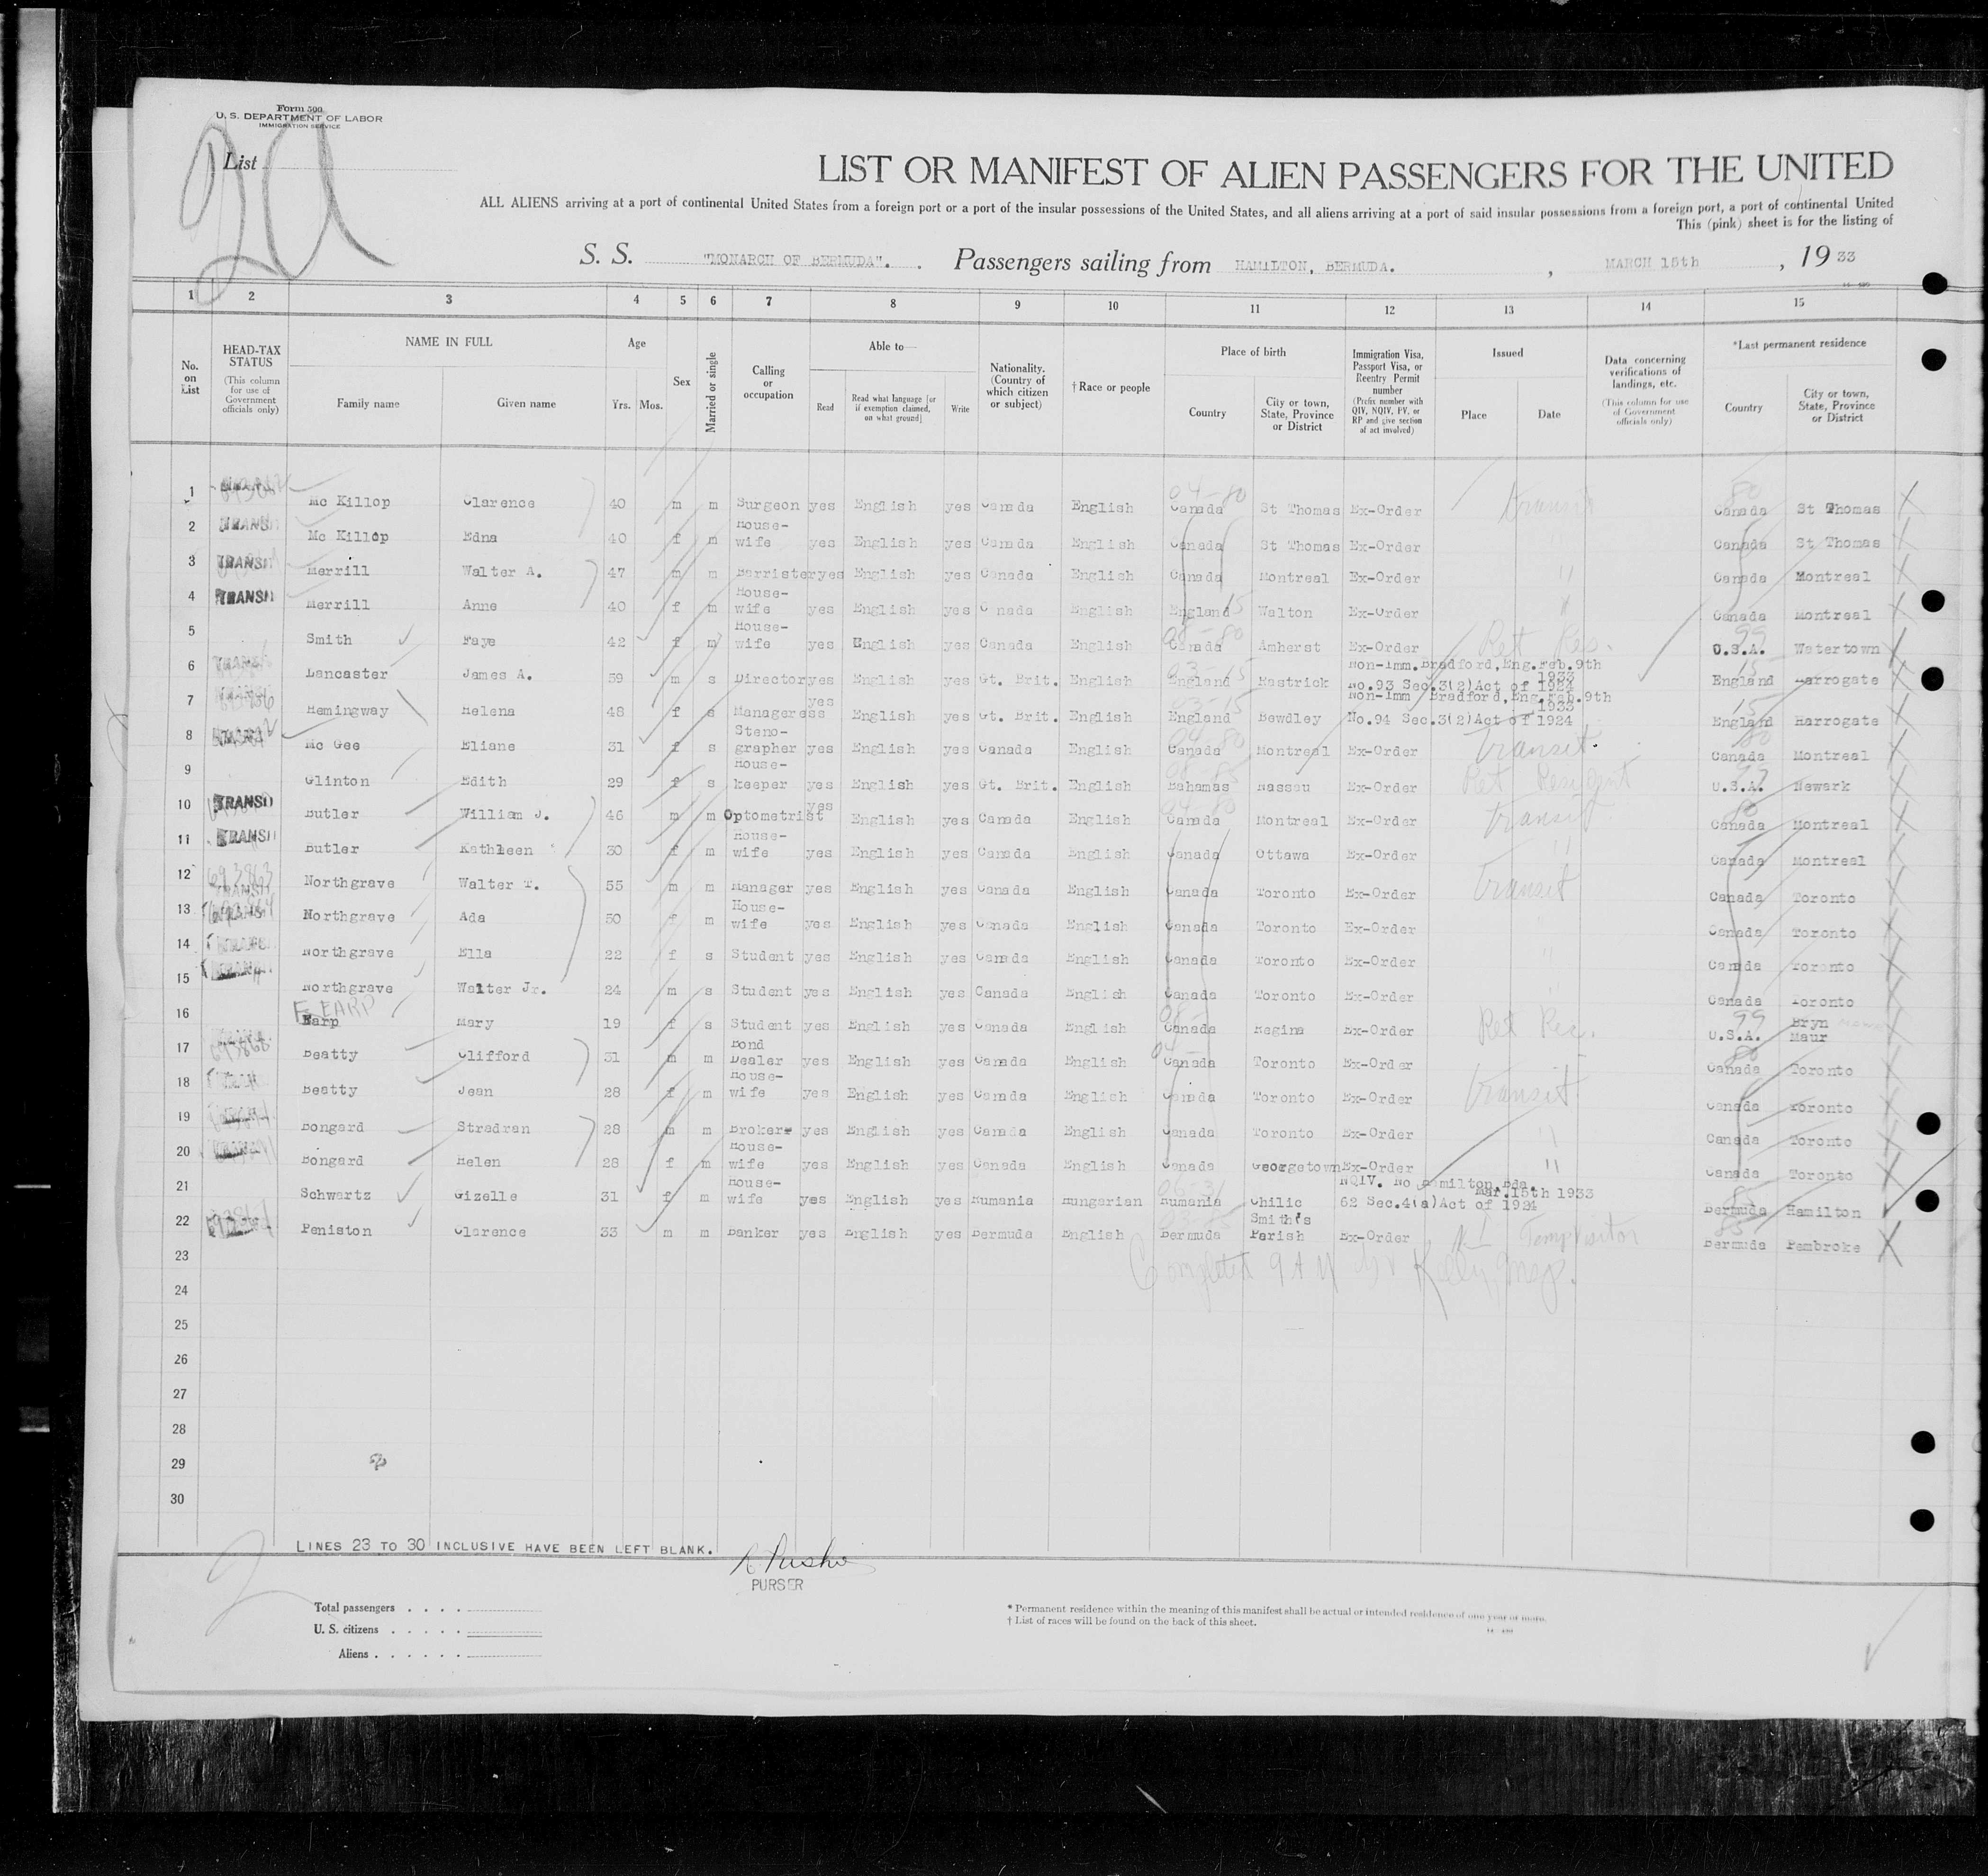 Form 500
U. S. DEPARTMENT OF LABOR
IMMIGRATION SERVICE
List
LIST OR MANIFEST OF ALIEN PASSENGERS FOR THE UNITED
ALL ALIENS arriving at a port of continental United States from a foreign port or a port of the insular possessions of the United States, and all aliens arriving at a port of said insular possessions from a foreign port, a port of continental United
This (pink) sheet is for the listing of
S. S. "MONARCH OF BERMUDA". Passengers sailing from HAMILTON, BERMUDA. , MARCH 15th , 19 33
1 2 3 4 5 6 7 8 9 10 11 12 13 14 15
No. on List
HEAD-TAX STATUS (This column for use of Government officials only)
NAME IN FULL Family name Given name
Age Yrs. Mos.
Sex
Married or single
Calling or occupation
Able to— Read Read what language [or if exemption claimed, on what ground] Write
Nationality. (Country of which citizen or subject)
† Race or people
Place of birth Country City or town, State, Province or District
Immigration Visa, Passport Visa, or Reentry Permit number (Prefix number with QIV, NQIV, PV, or RP and give section of act involved)
Issued Place Date
Data concerning verifications of landings, etc. (This column for use of Government officials only)
*Last permanent residence Country City or town, State, Province or District
1 Mc Killop Clarence 40 m m Surgeon yes English yes Canada English Canada St Thomas Ex-Order transit Canada St Thomas
2 TRANSIT Mc Killop Edna 40 f m House-wife yes English yes Canada English Canada St Thomas Ex-Order Canada St Thomas
3 TRANSIT Merrill Walter A. 47 m m Barrister yes English yes Canada English Canada Montreal Ex-Order " Canada Montreal
4 TRANSIT Merrill Anne 40 f m House-wife yes English yes C nada English England Walton Ex-Order " Canada Montreal
5 Smith Faye 42 f m House-wife yes English yes Canada English Canada Amherst Ex-Order Ret Res. U.S.A. Watertown
6 Lancaster James A. 59 m s Director yes English yes Gt. Brit. English England Rastrick Non-Imm. Bradford, Eng. Feb. 9th 1933 No. 93 Sec. 3(2) Act of 1924 England Harrogate
7 Hemingway Helena 48 f s Manageress yes English yes Gt. Brit. English England Bewdley Non-Imm Bradford, Eng. Feb. 9th 1933 No. 94 Sec. 3(2) Act of 1924 England Harrogate
8 Mc Gee Eliane 31 f s Steno-grapher yes English yes Canada English Canada Montreal Ex-Order transit. Canada Montreal
9 Glinton Edith 29 f s House-keeper yes English yes Gt. Brit. English Bahamas Nassau Ex-Order Ret Resident U.S.A. Newark
10 TRANSIT Butler William J. 46 m m Optometrist yes English yes Canada English Canada Montreal Ex-Order transit Canada Montreal
11 TRANSIT Butler Kathleen 30 f m House-wife yes English yes Canada English Canada Ottawa Ex-Order " Canada Montreal
12 693863 Northgrave Walter T. 55 m m Manager yes English yes Canada English Canada Toronto Ex-Order transit Canada Toronto
13 Northgrave Ada 50 f m House-wife yes English yes Canada English Canada Toronto Ex-Order " Canada Toronto
14 Northgrave Ella 22 f s Student yes English yes Canada English Canada Toronto Ex-Order " Canada Toronto
15 Northgrave Walter Jr. 24 m s Student yes English yes Canada English Canada Toronto Ex-Order " Canada Toronto
EARP
16 Earp Mary 19 f s Student yes English yes Canada English Canada Regina Ex-Order Ret Res. U.S.A. Bryn Maur
17 Beatty Clifford 31 m m Bond Dealer yes English yes Canada English Canada Toronto Ex-Order Canada Toronto
18 Beatty Jean 28 f m House-wife yes English yes Canada English Canada Toronto Ex-Order transit Canada Toronto
19 Bongard Stradran 28 m m Broker yes English yes Canada English Canada Toronto Ex-Order " Canada Toronto
20 Bongard Helen 28 f m House-wife yes English yes Canada English Canada Georgetown Ex-Order " Canada Toronto
21 Schwartz Gizelle 31 f m House-wife yes English yes Rumania Hungarian Rumania Chilic NQIV. No Hamilton, Bda. Mar. 15th 1933 62 Sec. 4(a) Act of 1924 Bermuda Hamilton
22 Peniston Clarence 33 m m Banker yes English yes Bermuda English Bermuda Smith's Parish Ex-Order Temp Visitor Bermuda Pembroke
23 Completed 9 A M Kelly, Insp.
24
25
26
27
28
29
30
LINES 23 TO 30 INCLUSIVE HAVE BEEN LEFT BLANK.
PURSER
Total passengers . . . .
U. S. citizens . . . . .
Aliens . . . . . .
* Permanent residence within the meaning of this manifest shall be actual or intended residence of one year or more.
† List of races will be found on the back of this sheet.